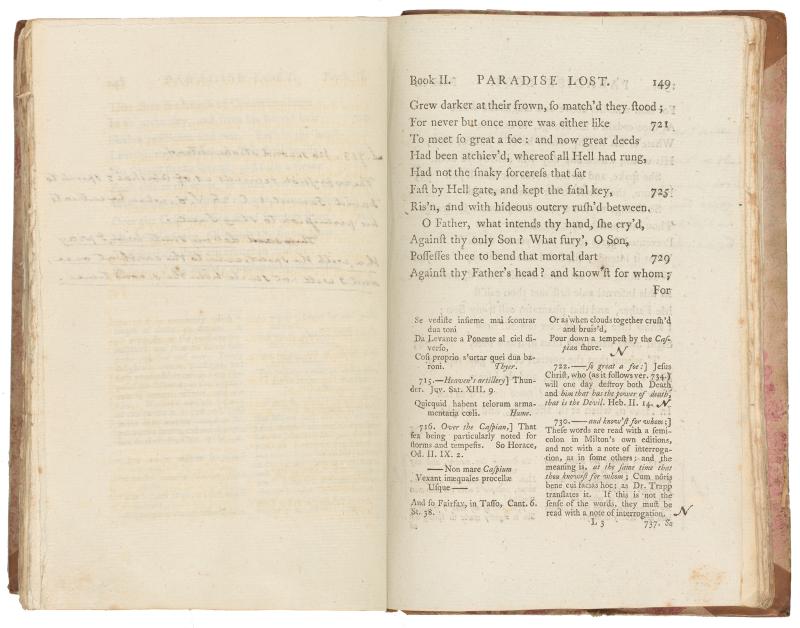 Book II. PARADISE LOST. 149
Grew darker at their frown, ſo match'd they ſtood;
For never but once more was either like 721
To meet ſo great a foe: and now great deeds
Had been atchiev'd, whereof all Hell had rung,
Had not the ſnaky ſorcereſs that ſat
Faſt by Hell gate, and kept the fatal key, 725
Ris'n, and with hideous outcry ruſh'd between.
O Father, what intends thy hand, ſhe cry'd,
Againſt thy only Son? What fury', O Son,
Poſſeſſes thee to bend that mortal dart 729
Againſt thy Father's head? and know'ſt for whom;
For
Se vediſte inſieme mai ſcontrar
dua toni
Da Levante a Ponente al ciel di-
verſo,
Coſi proprio s'urtar quei dua ba-
roni. Thyer.
715.—Heaven's artillery] Thun-
der. Juv. Sat. XIII. 9.
Quicquid habent telorum arma-
mentaria cœli. Hume.
716. Over the Caſpian,] That
ſea being particularly noted for
ſtorms and tempeſts. So Horace,
Od. II. IX. 2.
——Non mare Caſpium
Vexant inæquales procellæ
Uſque——
And ſo Fairfax, in Taſſo, Cant. 6.
St. 38.
Or as when clouds together cruſh'd
and bruis'd,
Pour down a tempeſt by the Caſ-
pian ſhore. N
722.——ſo great a foe:] Jeſus
Chriſt, who (as it follows ver. 734.)
will one day deſtroy both Death
and him that has the power of death,
that is the Devil. Heb. II. 14. N
730.——and know'ſt for whom;]
Theſe words are read with a ſemi-
colon in Milton's own editions,
and not with a note of interroga-
tion, as in ſome others; and the
meaning is, at the ſame time that
thou knoweſt for whom; Cum nôris
bene cui facias hoc; as Dr. Trapp
tranſlates it. If this is not the
ſenſe of the words, they muſt be
read with a note of interrogation. N
L 3 737. So